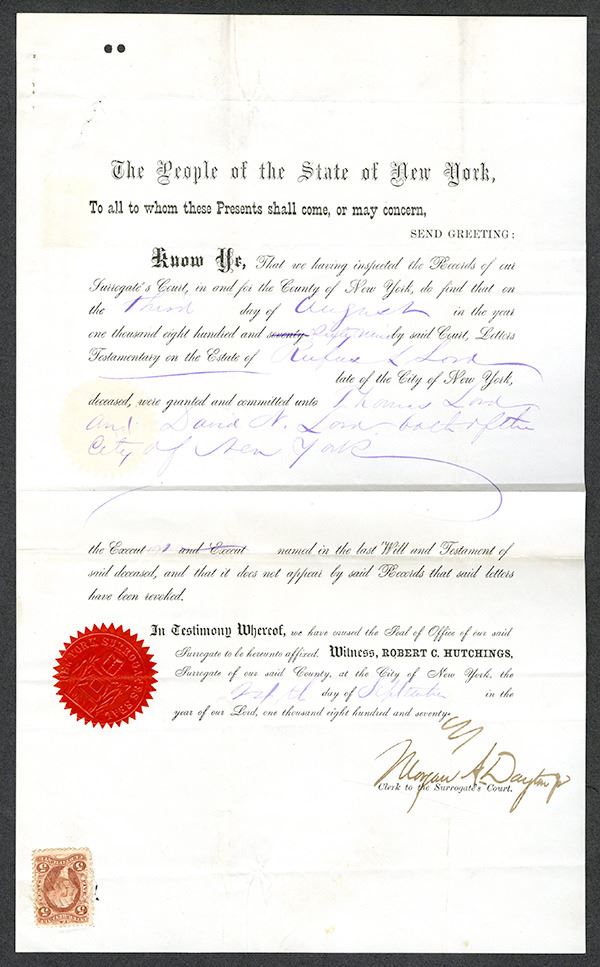 The People of the State of New York,
To all to whom these Presents shall come, or may concern,
SEND GREETING:
Know Ye, That we having inspected the Records of our
Surrogate's Court, in and for the County of New York, do find that on
the Third day of August in the year
one thousand eight hundred and seventy Sixty Nine by said Court, Letters
Testamentary on the Estate of Rufus L Lord
late of the City of New York,
deceased, were granted and committed unto Thomas Lord
and David N. Lord both of the
City of New York
the Execut and Execut named in the last Will and Testament of
said deceased, and that it does not appear by said Records that said letters
have been revoked.
In Testimony Whereof, we have caused the Seal of Office of our said
Surrogate to be hereunto affixed. Witness, ROBERT C. HUTCHINGS,
Surrogate of our said County, at the City of New York, the
day of September in the
year of our Lord, one thousand eight hundred and seventy.
Morgan A. Dayton Jr
Clerk to the Surrogate's Court.
5 5